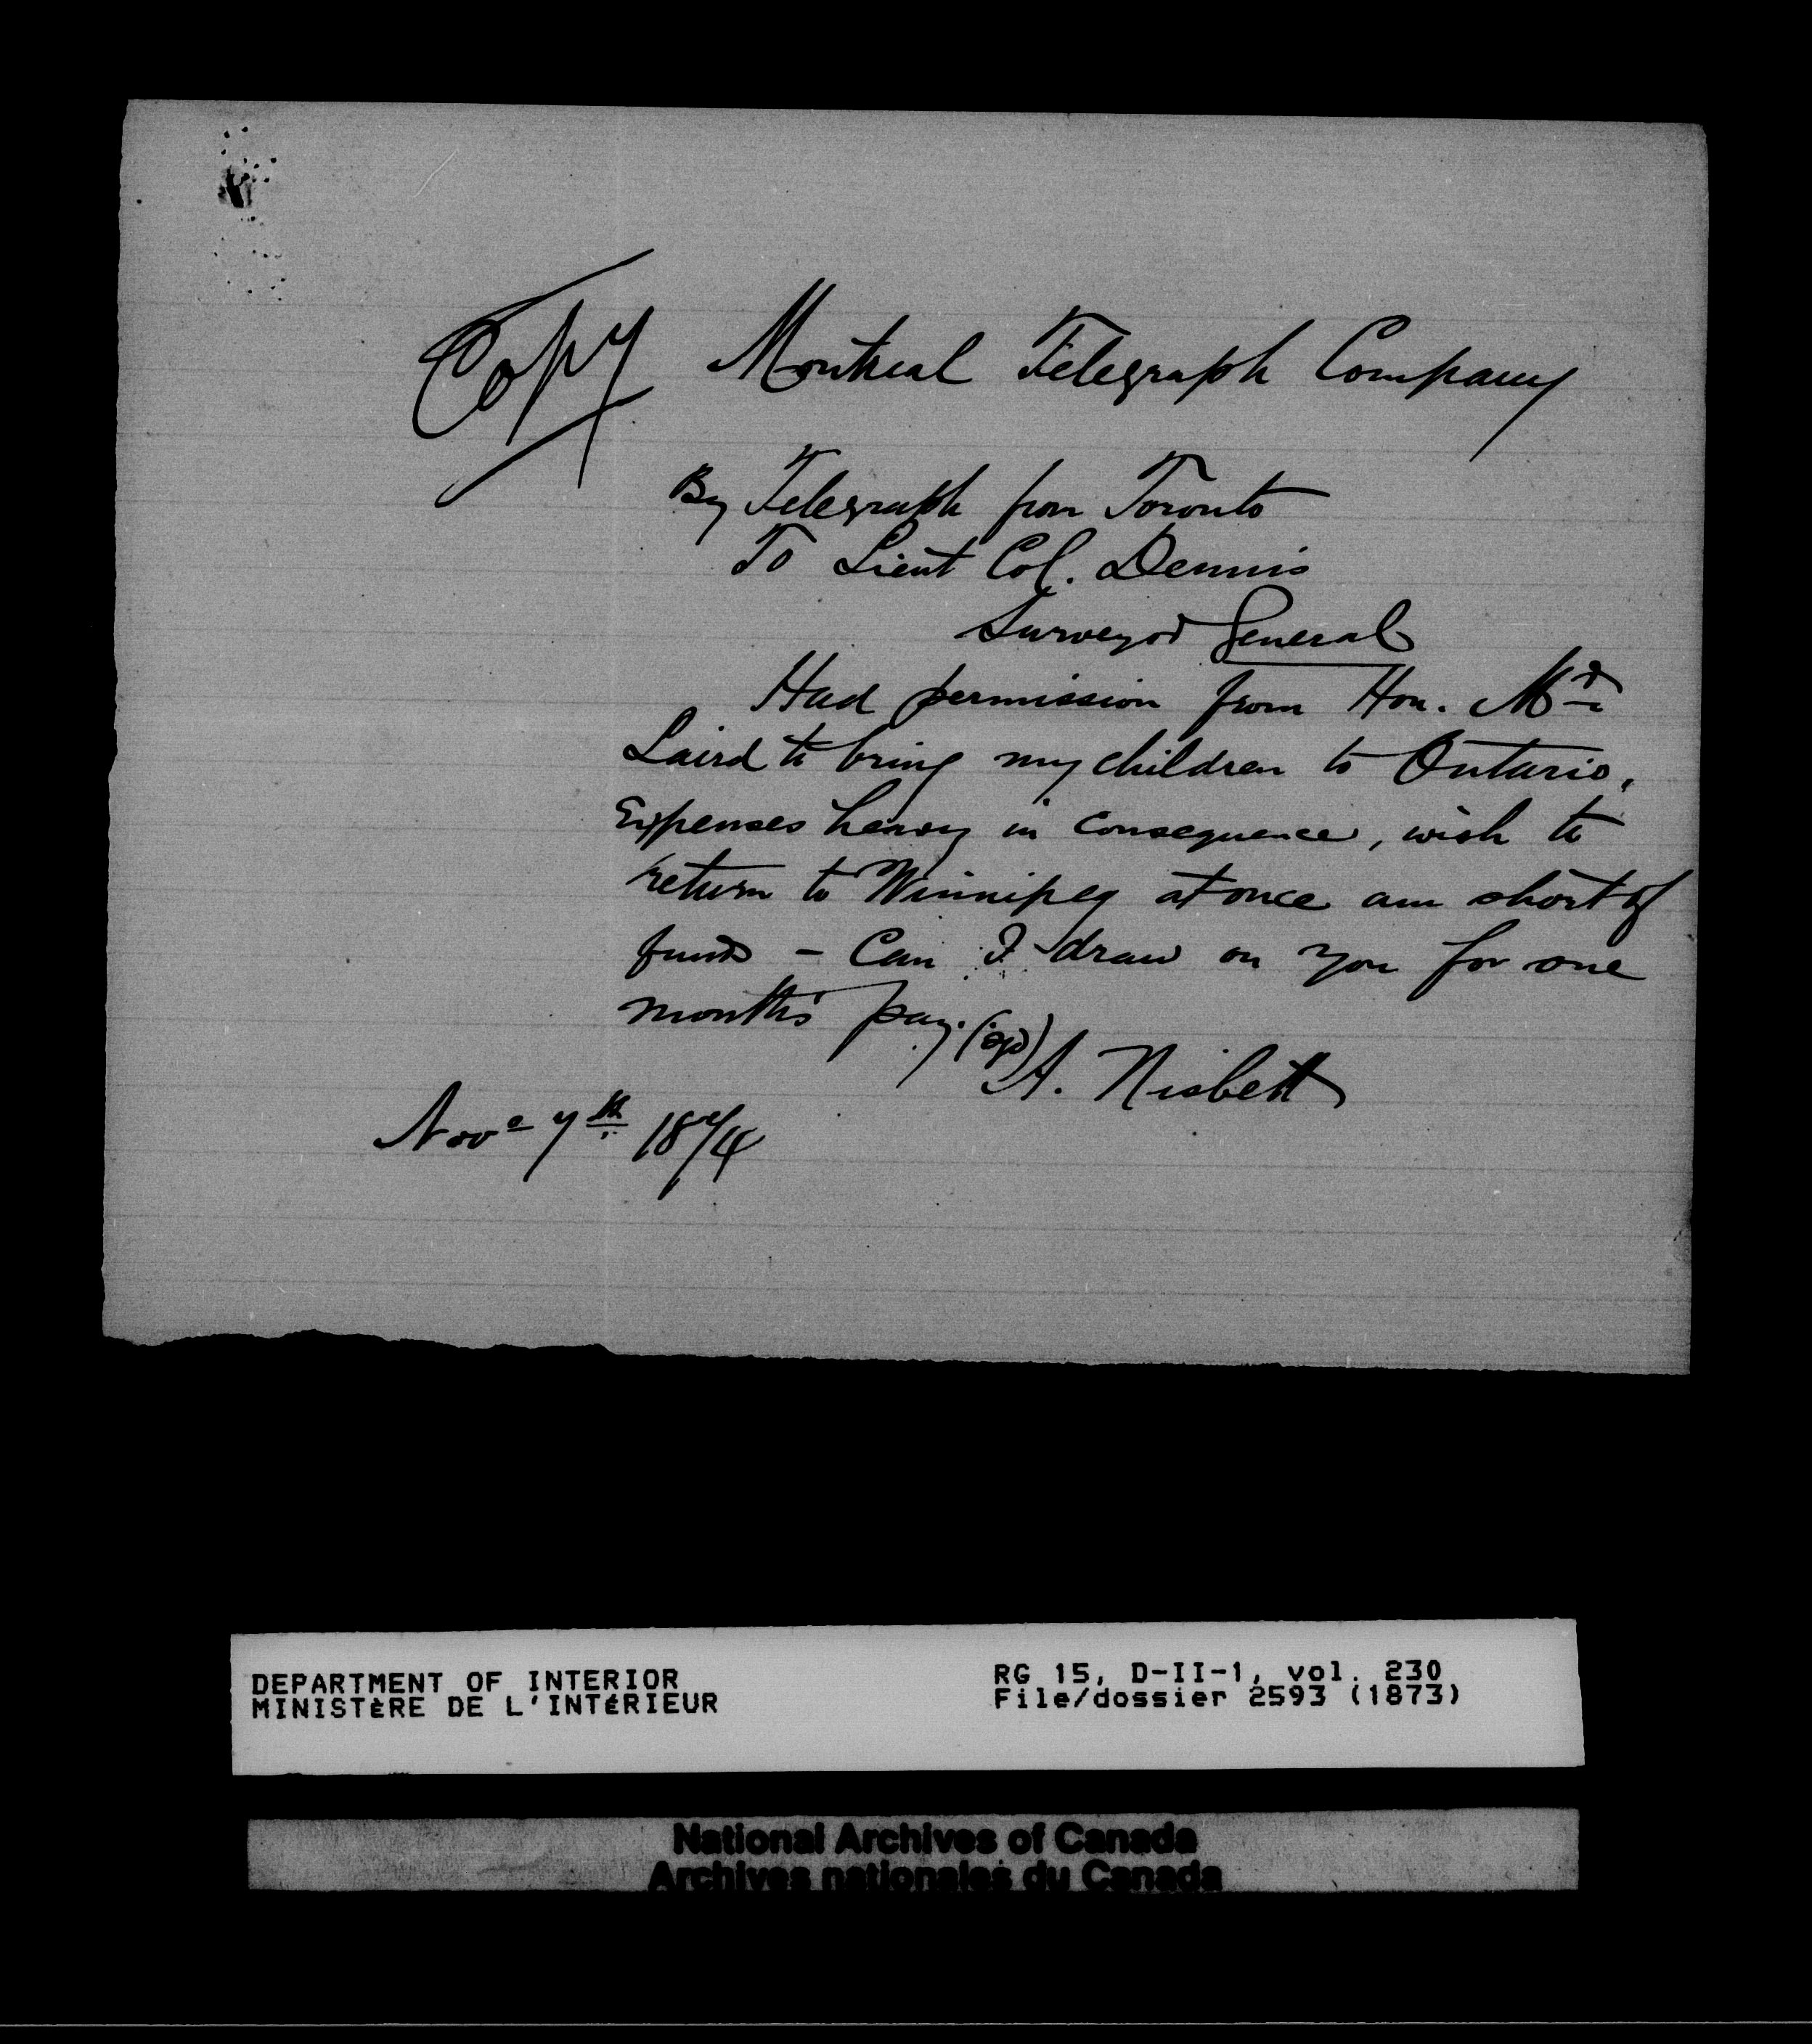 Copy Montreal Telegraph Company
By Telegraph from Toronto
To Lieut Col. Dennis
Surveyor General
Had permission from Hon. Mr
Laird to bring my children to Ontario,
Expenses heavy in consequence, wish to
return to Winnipeg at once am short of
funds - Can I draw on you for one
month's pay. (sgd)
A. Nisbett
Novr 7th 1874
DEPARTMENT OF INTERIOR
MINISTÈRE DE L'INTÉRIEUR
RG 15, D-II-1, vol. 230
File/dossier 2593 (1873)
National Archives of Canada
Archives nationales du Canada